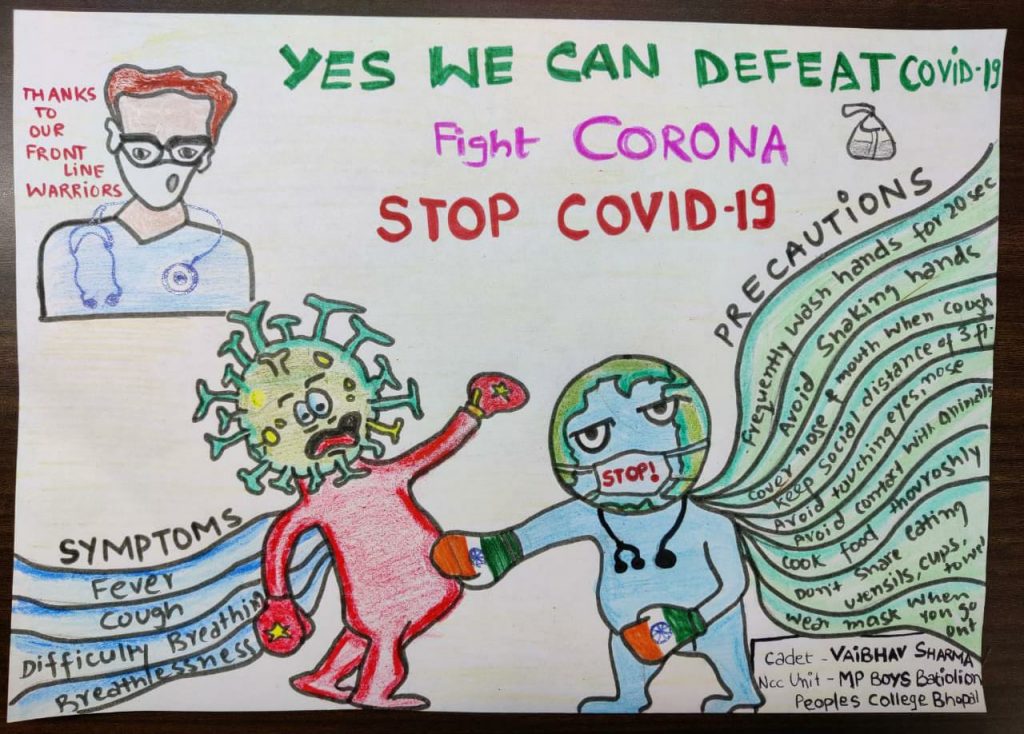 YES WE CAN DEFEAT COVID-19
Fight CORONA
STOP COVID-19
THANKS
TO
OUR
FRONT
LINE
WARRIORS
PRECAUTIONS
Frequently wash hands for 20 sec
Avoid Shaking hands
Cover nose & mouth when cough
Keep Social distance of 3 ft.
Avoid touching eyes, nose
Avoid contact with animals
Cook food thouroshly
Don't share eating
utensils, cups,
towel
Wear mask when
you go
out
STOP!
SYMPTOMS
Fever
Cough
Difficulty Breathing
Breathlessness
Cadet - VAIBHAV SHARMA
Ncc Unit - MP BOYS Batiolion
Peoples College Bhopal